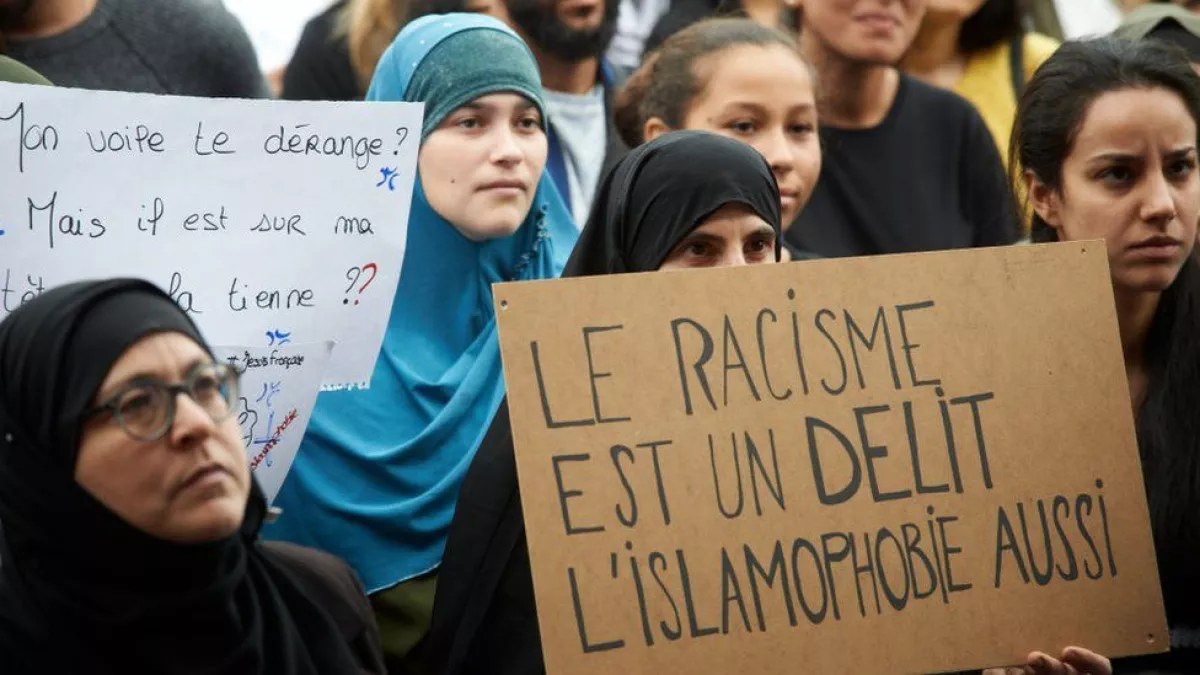 Mon voile te dérange ?
Mais il est sur ma
la tienne ??
# Jesuisfrançaise
LE RACISME
EST UN DELIT
L'ISLAMOPHOBIE AUSSI